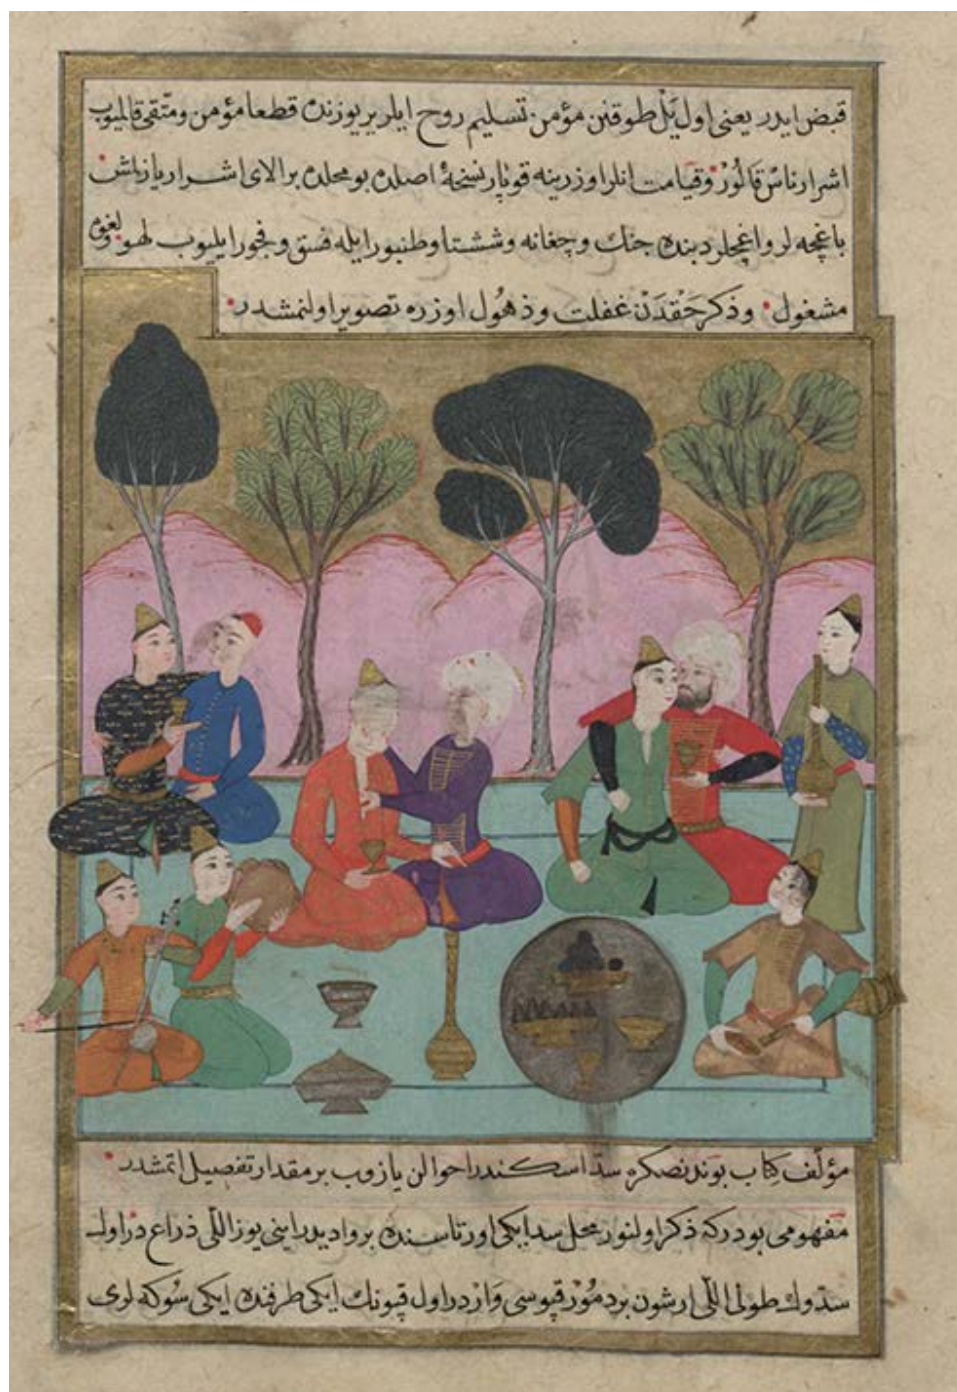 قبض ایدر یعنی اول یَلْ طوقنن مؤمن تسلیم روح ایلر یر یوزنده قطعا مؤمن و متّقی قالمیوب
اشرار ناسْ قَالُورْ وقیامت انلر اوزرینه قوپار نسخهٔ اصلده بو محلده بر الای اشرار یاز ناش
باغچه لر و اغچلر دبنده جنك و چغانه و ششتا و طنبور ایله فسق و فجور ایلیوب لهو و لغوه
مشغول و ذکر حَقْدَنْ غفلت و ذهُول اوزره تصویر اولنمشدر
مؤلّف کِتاب بوندنصکره سدّ اسکندر احوالن یازوب بر مقدار تفصیل اتمشدر
مَفهومی بودرکه ذکر اولنور محل سد ایکی اورتاسنده بر وادیدر اینی یوز اللّی ذراع در اول
سدّوك طولی اللّی ارشون بر دمُورْ قپوسی وَارْدر اول قپونك ایکی طرفنده ایکی سُوکه لری